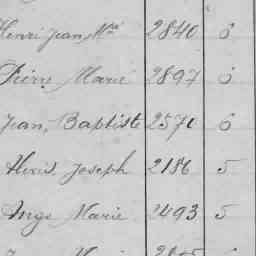 Henri Jean Mie 2840 6
Pierre Marie 2897 6
Jean, Baptiste 2570 6
Joseph 2186 5
Ange Marie 2493 5